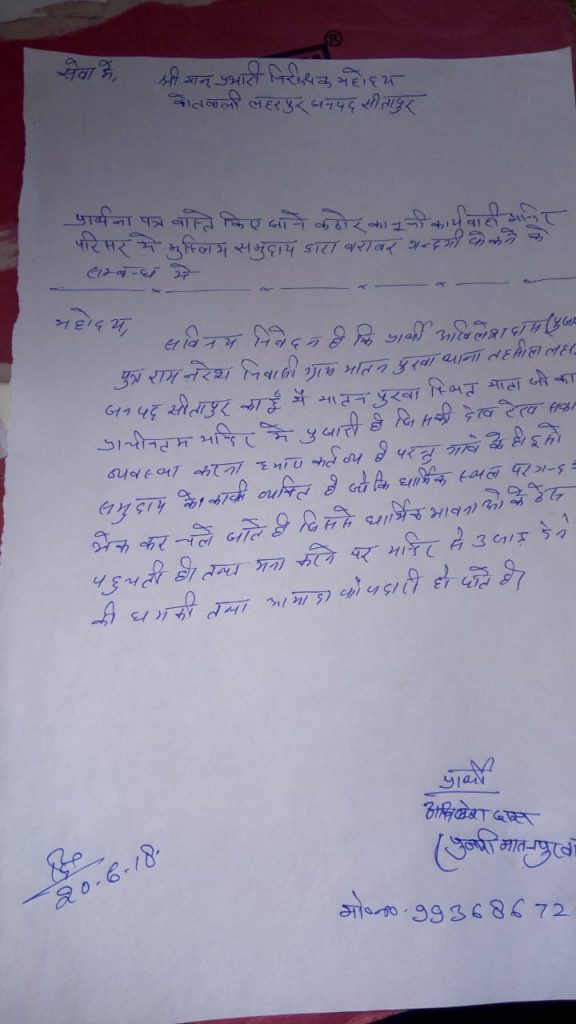 सेवा में,
श्री मान् प्रभारी निरीक्षक महोदय
कोतवाली लहरपुर जनपद सीतापुर
प्रार्थना पत्र वास्ते किए जाने कठोर कानूनी कार्यवाही मन्दिर
परिसर में मुस्लिम समुदाय द्वारा बराबर गन्दगी फेकने के
सम्बन्ध में
महोदय,
सविनय निवेदन है कि प्रार्थी अखिलेश दास
पुत्र राम नरेश निवासी ग्राम मातन पुरवा थाना तहसील
जनपद सीतापुर का हूँ मैं मातन पुरवा स्थित माता जी का
प्राचीनतम मन्दिर में पुजारी है जिसकी देख रेख
व्यवस्था करना हमारा कर्तव्य है परन्तु गांव के ही
समुदाय के काफी व्यक्ति है जो कि धार्मिक स्थल पर
फेक कर चले जाते है जिससे धार्मिक भावनाओं के ठेस
पहुचती है। तथा मना करने पर मन्दिर से उजाड़ देने
की धमकी तथा आमादा फौजदारी हो जाते है।
प्रार्थी
अखिलेश दास
(पुजारी मातनपुरवा
20.6.18.
मो०न०. 99368672